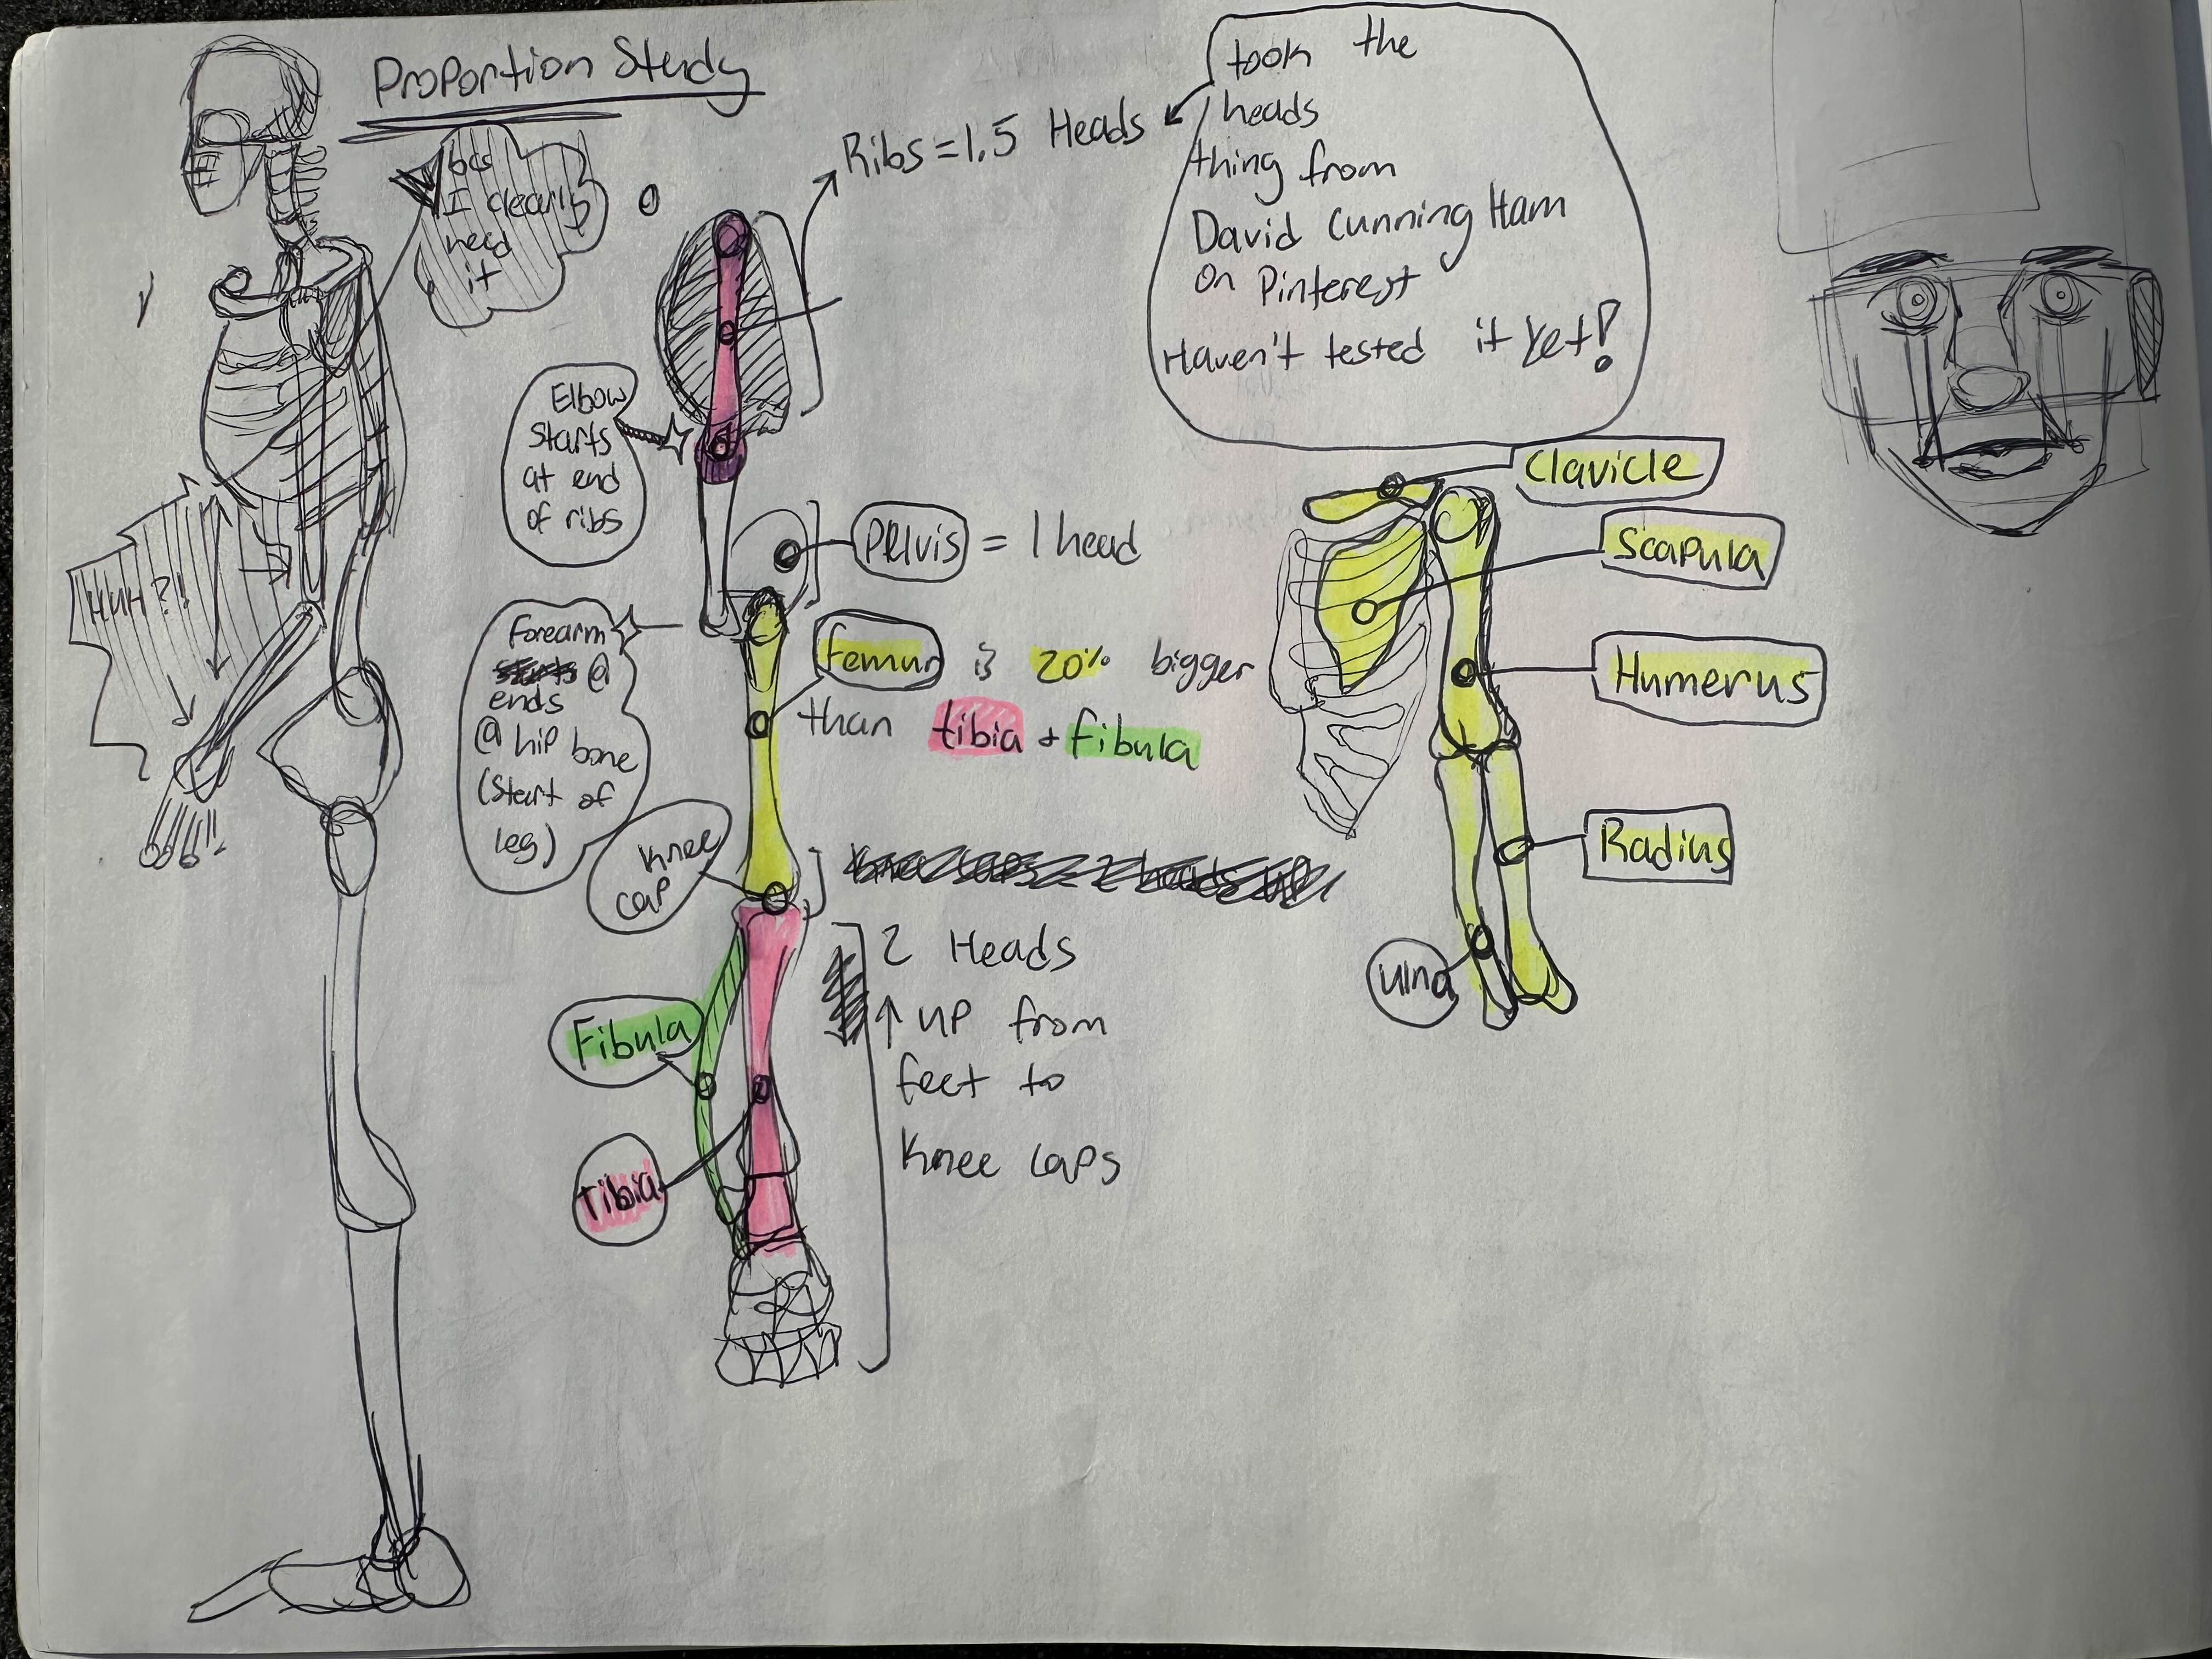 Proportion Study
bcs
I clearly
need
it
Ribs = 1.5 Heads
took the
heads
thing from
David Cunning Ham
on Pinterest
Haven't tested it Yet!
Elbow
starts
at end
of ribs
HUH?!
Pelvis = 1 head
Forearm
@
ends
@ hip bone
(start of
leg)
Femur is 20% bigger
than tibia + Fibula
Knee
cap
2 Heads
↑ up from
feet to
Knee caps
Fibula
Tibia
Clavicle
Scapula
Humerus
Radius
Ulna